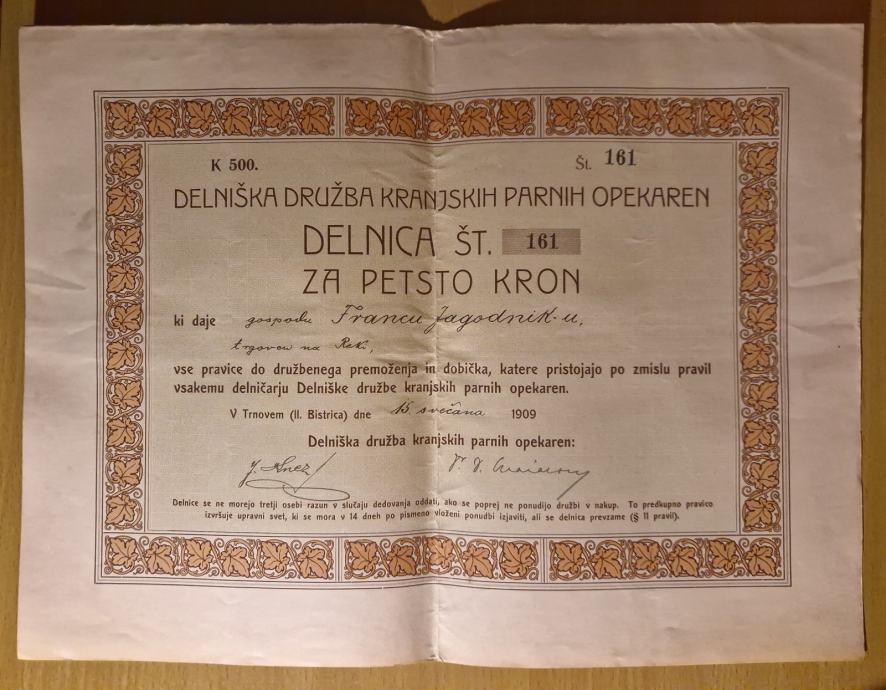 K 500. Št. 161
DELNIŠKA DRUŽBA KRANJSKIH PARNIH OPEKAREN
DELNICA ŠT. 161
ZA PETSTO KRON
ki daje gospodu Francu Jagodnik-u,
trgovcu na Reki,
vse pravice do družbenega premoženja in dobička, katere pristojajo po zmislu pravil
vsakemu delničarju Delniške družbe kranjskih parnih opekaren.
V Trnovem (Il. Bistrica) dne 15. svečana 1909
Delniška družba kranjskih parnih opekaren:
Delnice se ne morejo tretji osebi razun v slučaju dedovanja oddati, ako se poprej ne ponudijo družbi v nakup. To predkupno pravico
izvršuje upravni svet, ki se mora v 14 dneh po pismeno vloženi ponudbi izjaviti, ali se delnica prevzame (§ 11 pravil).